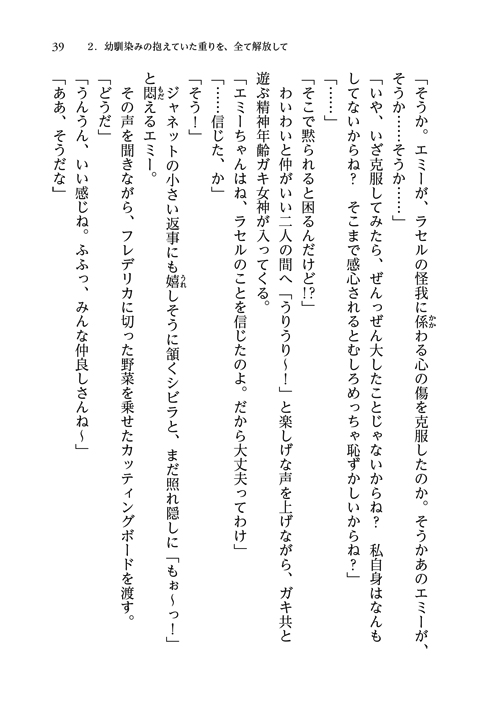 39　2．幼馴染みの抱えていた重りを、全て解放して
「そうか。エミーが、ラセルの怪我に係わる心の傷を克服したのか。そうかあのエミーが、
そうか……そうか……」
「いや、いざ克服してみたら、ぜんっぜん大したことじゃないからね？　私自身はなんも
してないからね？　そこまで感心されるとむしろめっちゃ恥ずかしいからね？」
「……」
「そこで黙られると困るんだけど!?」
わいわいと仲がいい二人の間へ「うりうり〜！」と楽しげな声を上げながら、ガキ共と
遊ぶ精神年齢ガキ女神が入ってくる。
「エミーちゃんはね、ラセルのことを信じたのよ。だから大丈夫ってわけ」
「……信じた、か」
「そう！」
ジャネットの小さい返事にも嬉しそうに頷くシビラと、まだ照れ隠しに「もぉ〜っ！」
と悶えるエミー。
その声を聞きながら、フレデリカに切った野菜を乗せたカッティングボードを渡す。
「どうだ」
「うんうん、いい感じね。ふふっ、みんな仲良しさんね〜」
「ああ、そうだな」